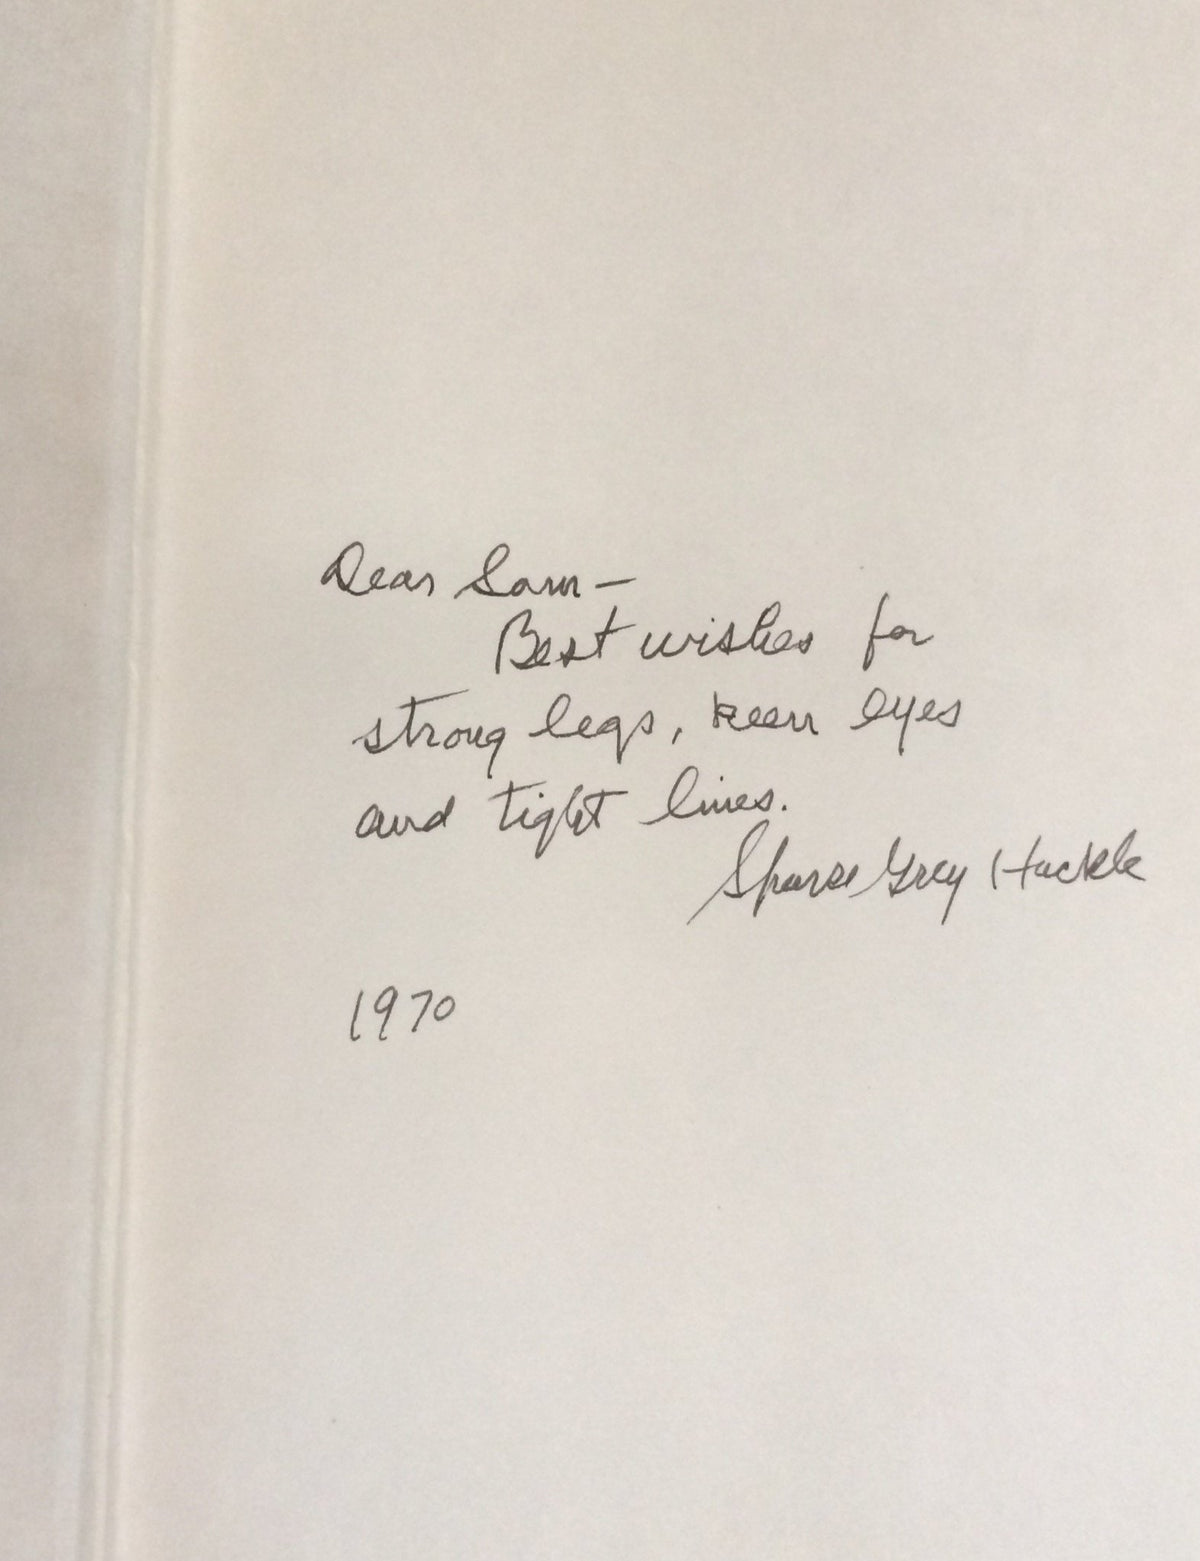 Dear Sam —
Best wishes for
strong legs, keen eyes
and tight lines.
Sparse Grey Hackle
1970